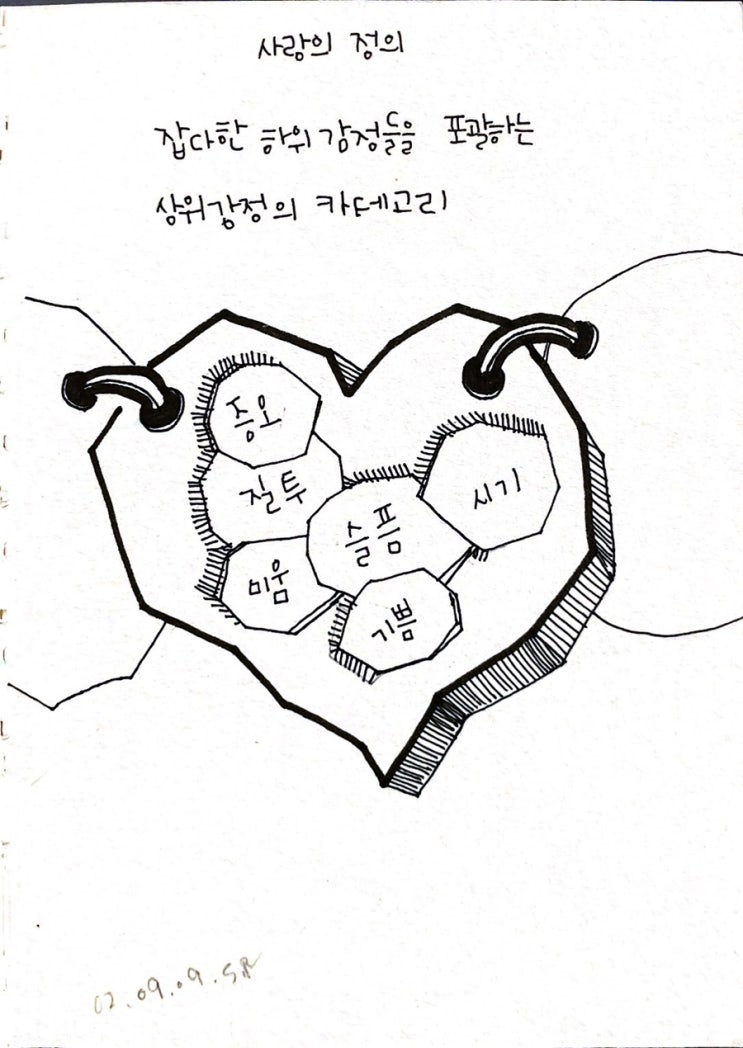 사랑의 정의
잡다한 하위 감정들을 포괄하는
상위감정의 카테고리
증오
질투
시기
슬픔
미움
기쁨
02.09.09.